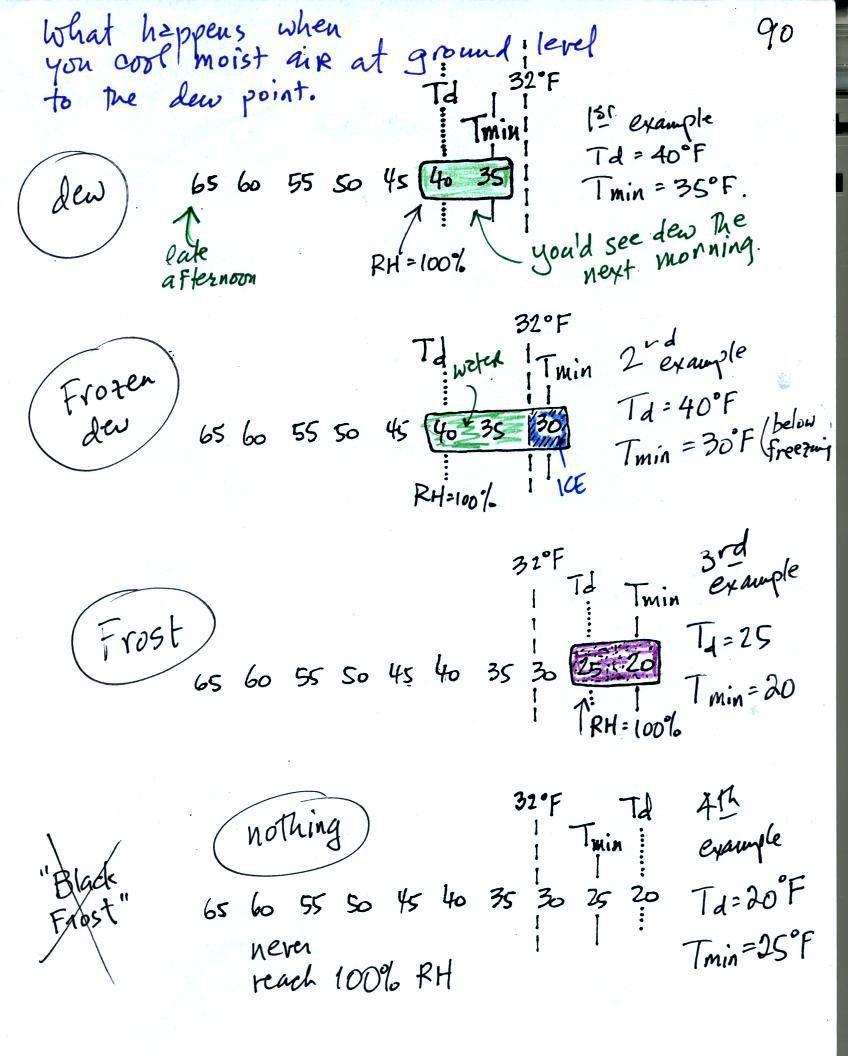 90
What happens when
you cool moist air at ground level
to the dew point.
dew
Td
32°F
Tmin
65 60 55 50 45 40 35
late
afternoon
RH=100%
you'd see dew the
next morning.
1st example
Td = 40°F
Tmin = 35°F.
Frozen
dew
Td
water
32°F
Tmin
65 60 55 50 45 40 35 30
RH=100%
ICE
2nd
example
Td = 40°F
Tmin = 30°F (below
freezing
Frost
32°F
Td
Tmin
65 60 55 50 45 40 35 30 25 20
RH=100%
3rd
example
Td=25
Tmin=20
"Black
Frost"
nothing
32°F
Tmin
Td
65 60 55 50 45 40 35 30 25 20
never
reach 100% RH
4th
example
Td=20°F
Tmin=25°F